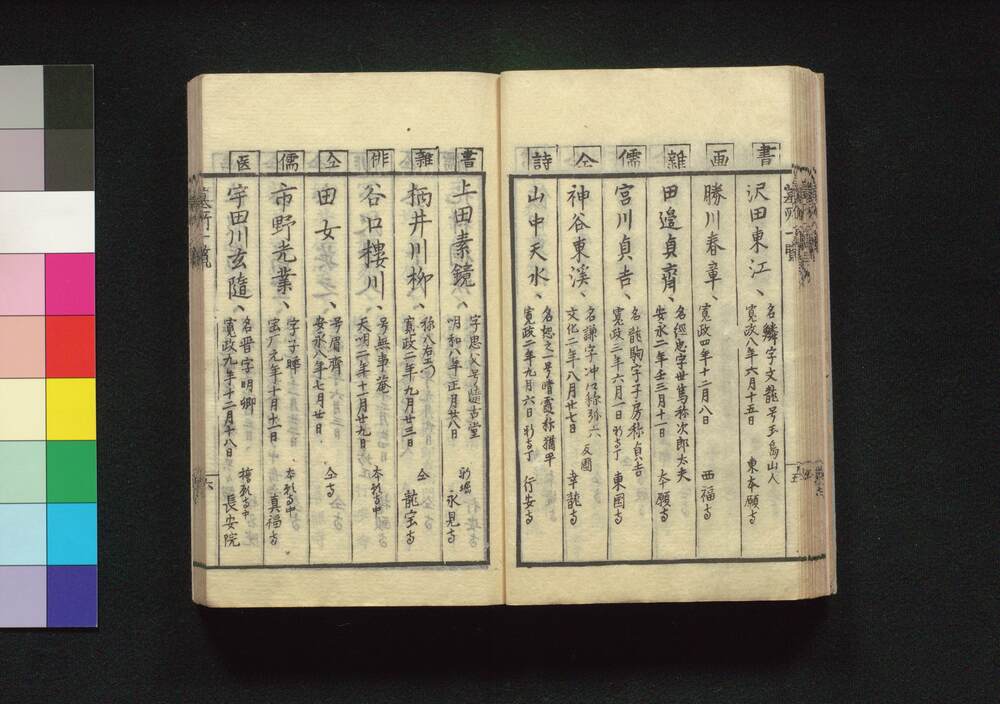 墓所一覧
五
書
沢田東江、
名鱗字文龍号玉島山人
寛政八年六月十五日
東本願寺
画
勝川春章、
寛政四年十二月八日
西福寺
雜
田邉貞齊、
名經忠字世篤称次郎太夫
安永二年壬三月十一日
本願寺
儒
宮川貞吉、
名龍駒字子房称貞吉
寛政三年六月一日
新寺丁
東国寺
仝
神谷東溪、
名謙字冲口称弥六
文化二年八月廿七日
反圃
幸龍寺
詩
山中天水、
名恕之一号晴霞称猶平
寛政二年九月六日
新寺丁
行安寺
書
上田素鏡、
字思父号随古堂
明和八年正月廿八日
新堀
永見寺
雜
柄井川柳、
称八右エ門
寛政二年九月廿三日
仝
龍宝寺
俳
谷口樓川、
号無事菴
天明二年十一月廿九日
本願寺中
仝
田女、
号眉齊
安永八年七月廿日
仝寺
儒
市野光業、
字子曄
宝暦元年十月十一日
本願寺中
真福寺
医
宇田川玄隨、
名晋字明卿
寛政九年十二月十八日
誓願寺中
長安院
墓所一覧
六